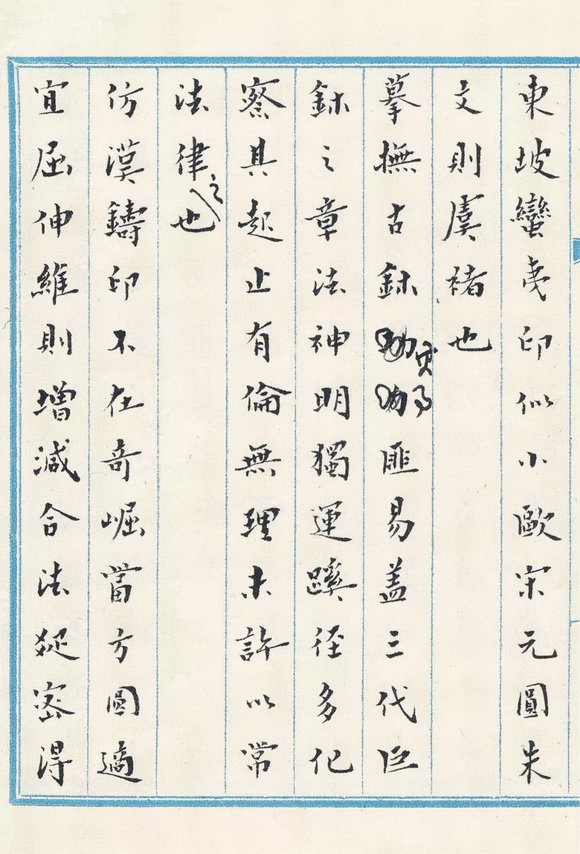 東坡蠻夷印似小歐宋元圓朱
文則虞褚也
摹撫古鉨匪易蓋三代巨
鉨之章法神明獨運蹊徑多化
察其起止有倫無理未許以常
法律之也
仿漢鑄印不在奇崛當方圓適
宜屈伸維則增減合法疏密得